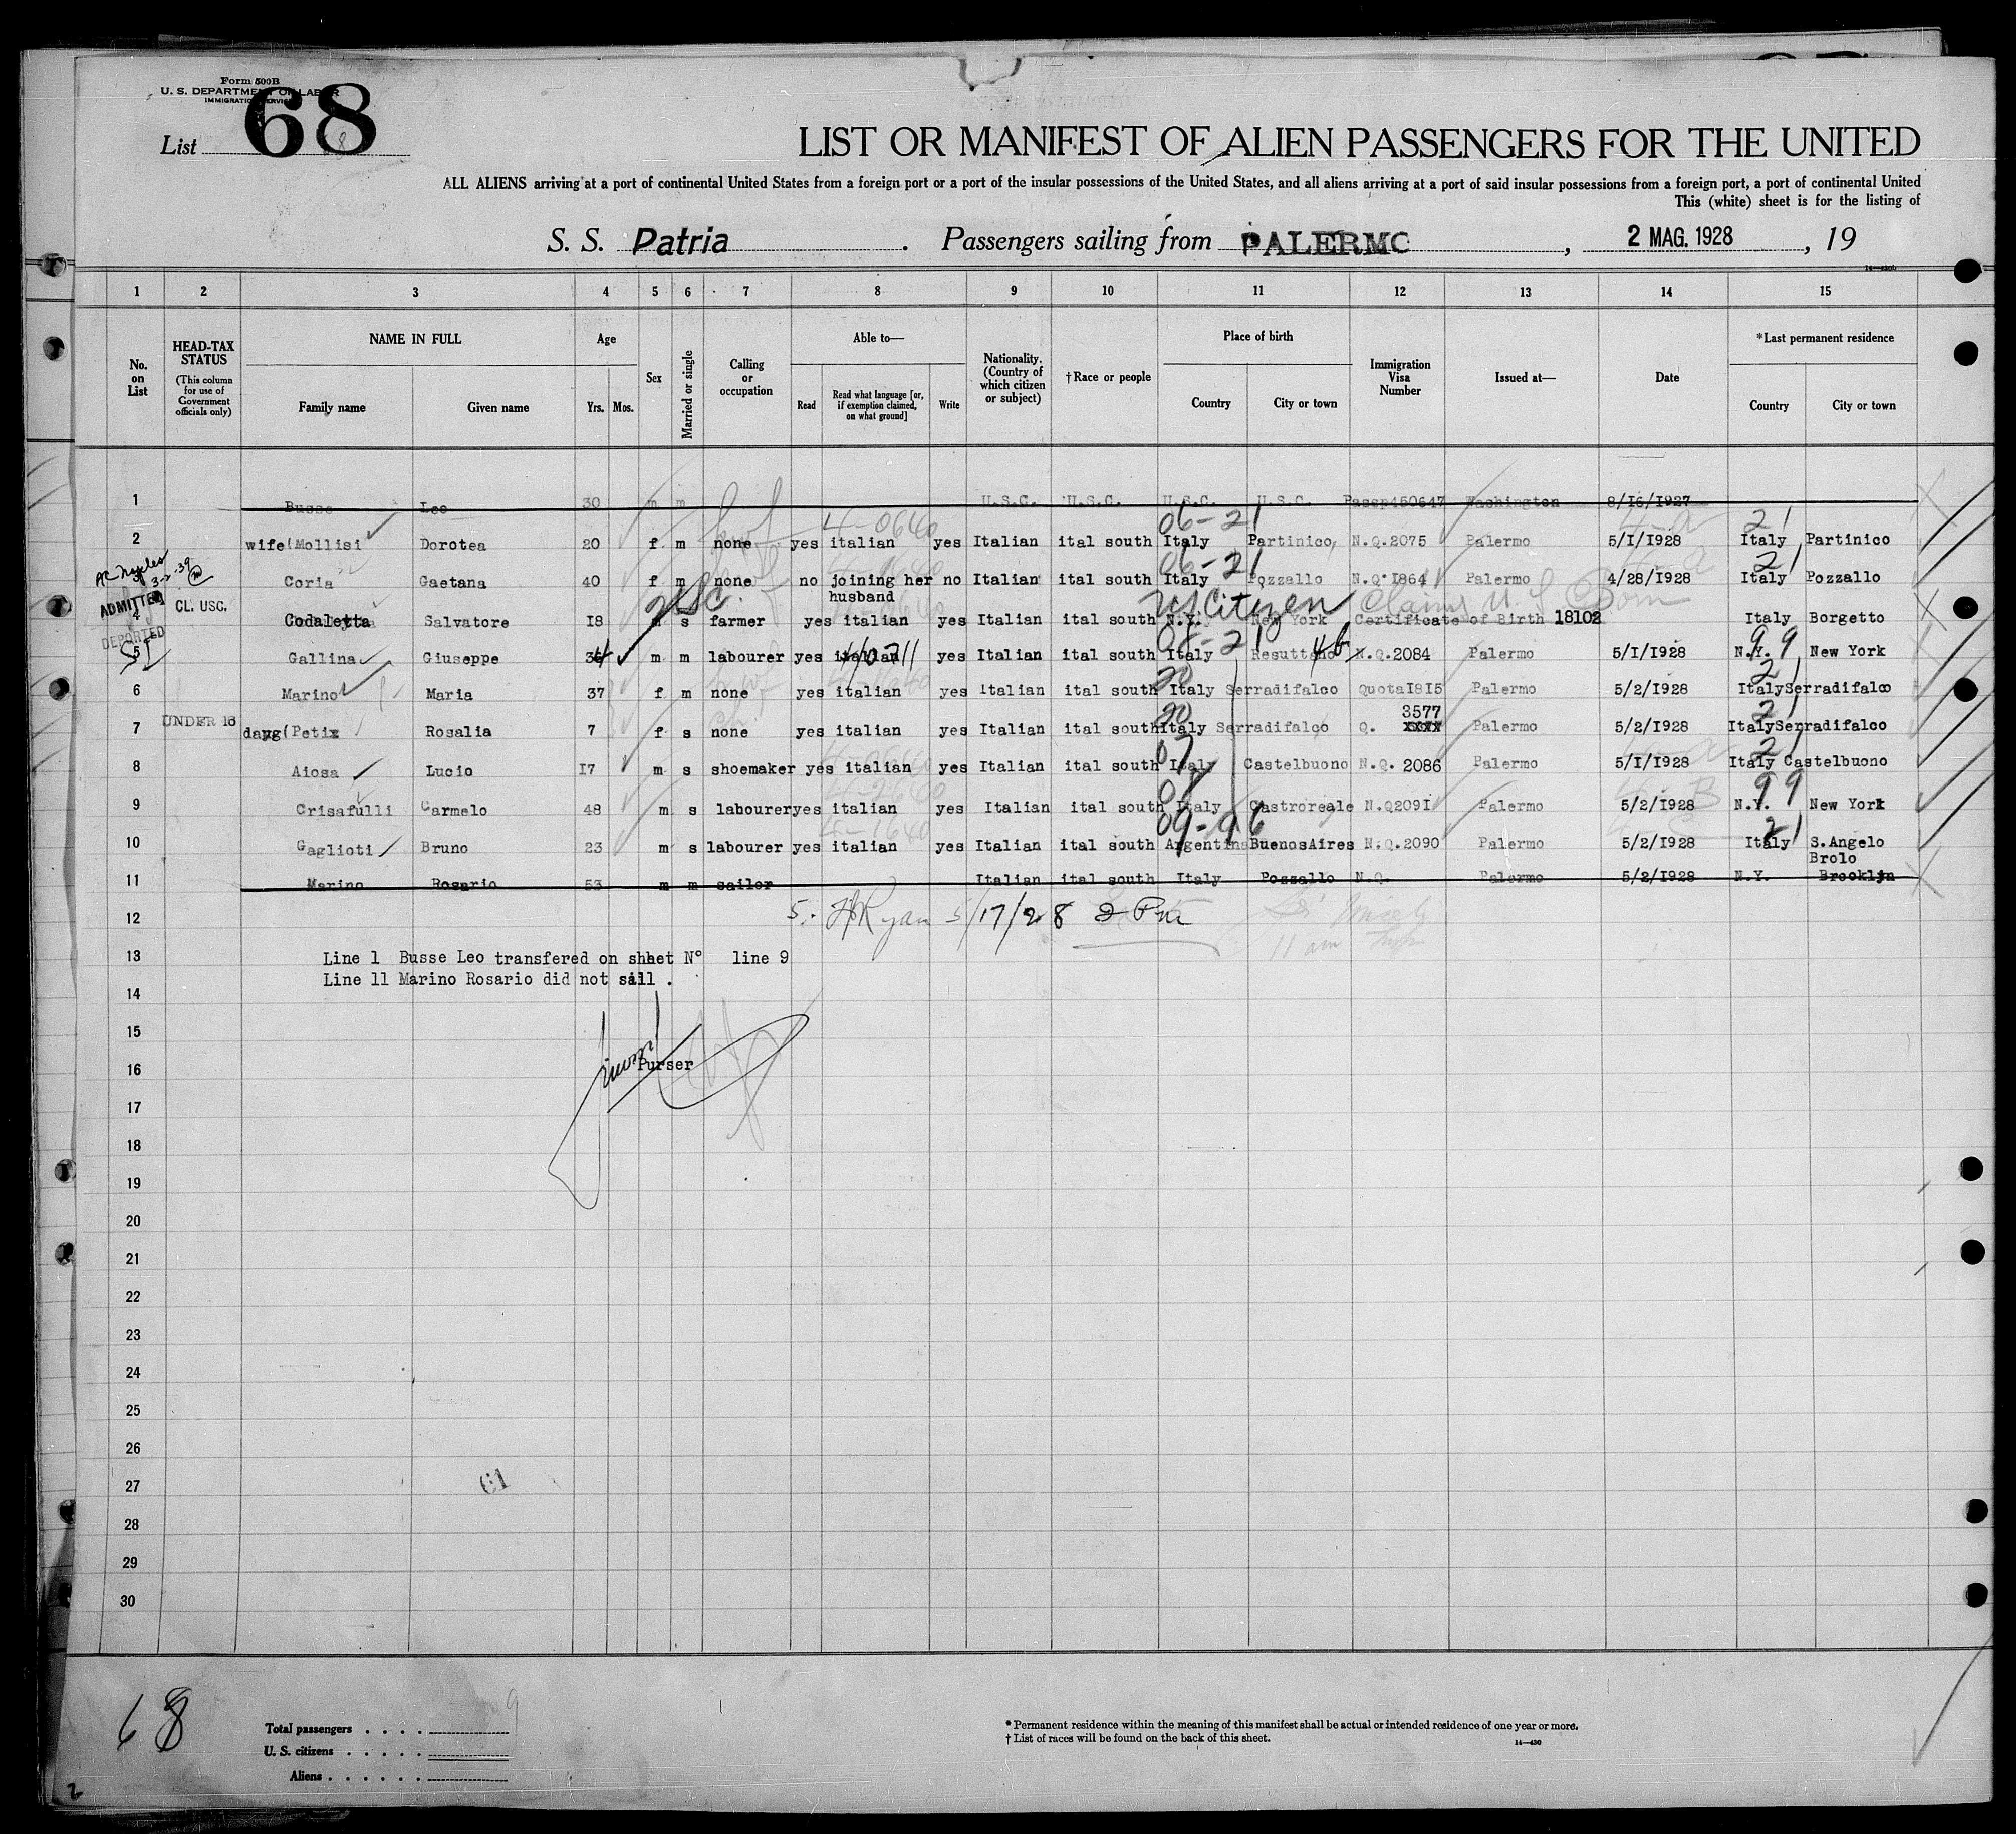 Form 500B
U. S. DEPARTMENT OF LABOR
IMMIGRATION SERVICE
List 68
LIST OR MANIFEST OF ALIEN PASSENGERS FOR THE UNITED
ALL ALIENS arriving at a port of continental United States from a foreign port or a port of the insular possessions of the United States, and all aliens arriving at a port of said insular possessions from a foreign port, a port of continental United
This (white) sheet is for the listing of
S. S. Patria . Passengers sailing from PALERMO , 2 MAG. 1928 , 19
14—430b
1 2 3 4 5 6 7 8 9 10 11 12 13 14 15
No. on List
HEAD-TAX STATUS (This column for use of Government officials only)
NAME IN FULL Family name Given name
Age Yrs. Mos.
Sex
Married or single
Calling or occupation
Able to— Read Read what language [or, if exemption claimed, on what ground] Write
Nationality. (Country of which citizen or subject)
†Race or people
Place of birth Country City or town
Immigration Visa Number
Issued at—
Date
*Last permanent residence Country City or town
1 Busse Leo 30 m m U.S.C. U.S.C. U.S.C. U.S.C. Passp450647 Washington 8/16/1927
4-0640 06-21 21
2 wife(Mollisi Dorotea 20 f m none yes italian yes Italian ital south Italy Partinico, N.Q.2075 Palermo 5/I/1928 Italy Partinico
06-21 21
3 Coria Gaetana 40 f m none no joining her husband no Italian ital south Italy Pozzallo N.Q.I864 Palermo 4/28/1928 Italy Pozzallo
3-2-39
USC. US Citizen Claims U S Born
ADMITTED
4 CL. USC. Codaletta Salvatore I8 m s farmer yes italian yes Italian ital south N.Y. New York Certificate of Birth 18102 Italy Borgetto
DEPORTED
5 Gallina Giuseppe 34 m m labourer yes italian yes Italian ital south Italy Resuttano N.Q.2084 Palermo 5/I/1928 N.Y. New York
6 Marino Maria 37 f m none yes italian yes italian ital south Italy Serradifalco QuotaI8I5 Palermo 5/2/I928 Italy Serradifalco
7 UNDER 16 daug(Petix Rosalia 7 f s none yes italian yes Italian ital south Italy Serradifalco Q. 3577 XXXX Palermo 5/2/I928 Italy Serradifalco
8 Aiosa Lucio I7 m s shoemaker yes italian yes Italian ital south Italy Castelbuono N.Q. 2086 Palermo 5/I/1928 Italy Castelbuono
9 Crisafulli Carmelo 48 m s labourer yes italian yes Italian ital south Italy Castroreale N.Q209I Palermo 5/2/1928 N.Y. New York
99
09-96 21
10 Gaglioti Bruno 23 m s labourer yes italian yes Italian ital south Argentina BuenosAires N.Q.2090 Palermo 5/2/1928 Italy S.Angelo Brolo
11 Marino Rosario 53 m m sailor Italian ital south Italy Pozzallo N.Q. Palermo 5/2/I928 N.Y. Brooklyn
12 Ryan 5/17/28 2 Pm
11 am
13 Line 1 Busse Leo transfered on sheet N° line 9
Line 11 Marino Rosario did not sail .
14
15
16 Purser
17
18
19
20
21
22
23
24
25
26
27 61
28
29
30
68
Total passengers . . . . 9
U. S. citizens . . . . .
Aliens . . . . . .
* Permanent residence within the meaning of this manifest shall be actual or intended residence of one year or more.
† List of races will be found on the back of this sheet.
14—430
2